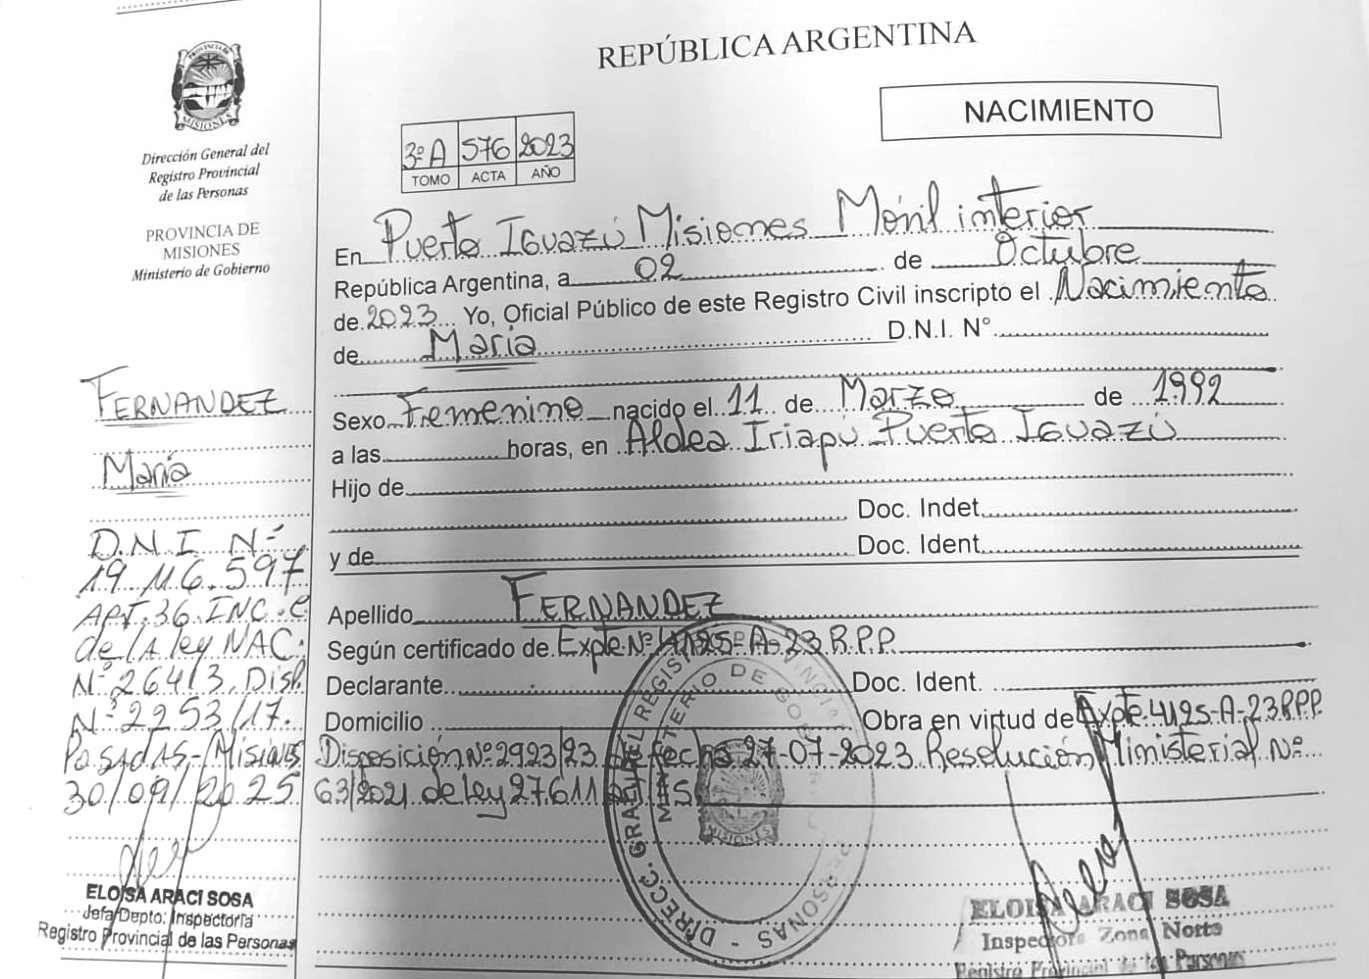 PROVINCIA DE
MISIONES
Dirección General del
Registro Provincial
de las Personas
PROVINCIA DE
MISIONES
Ministerio de Gobierno
FERNANDEZ
María
D.N.I N°
19.116.597
Art. 36. INC. C
de la ley NAC.
N° 26413. Disp.
N° 2253/17.
Posadas-Misiones
30/09/2025
ELOISA ARACI SOSA
Jefa Depto. Inspectoría
Registro Provincial de las Personas
REPÚBLICA ARGENTINA
NACIMIENTO
3°A 576 2023
TOMO ACTA AÑO
En Puerto Iguazú Misiones Móvil interior
República Argentina, a 02 de Octubre
de 2023 Yo, Oficial Público de este Registro Civil inscripto el Nacimiento
de María D.N.I. N°
Sexo Femenino nacido el 11 de Marzo de 1992
a las horas, en Aldea Iriapú Puerto Iguazú
Hijo de
Doc. Indet.
y de Doc. Ident.
Apellido FERNANDEZ
Según certificado de Expte N° 4125-A-23 R.P.P.
Declarante Doc. Ident.
Domicilio Obra en virtud de Expte. 4125-A-23 RPP
Disposición N° 2923/23 de fecha 27-07-2023 Resolución Ministerial N°
63/2021 de ley 27611
DIRECC. GRAL. DEL REGISTRO PROVINCIAL PERSONAS
MINISTERIO DE GOBIERNO
MISIONES
ELOISA ARACI SOSA
Inspectora Zona Norte
Registro Provincial de las Personas